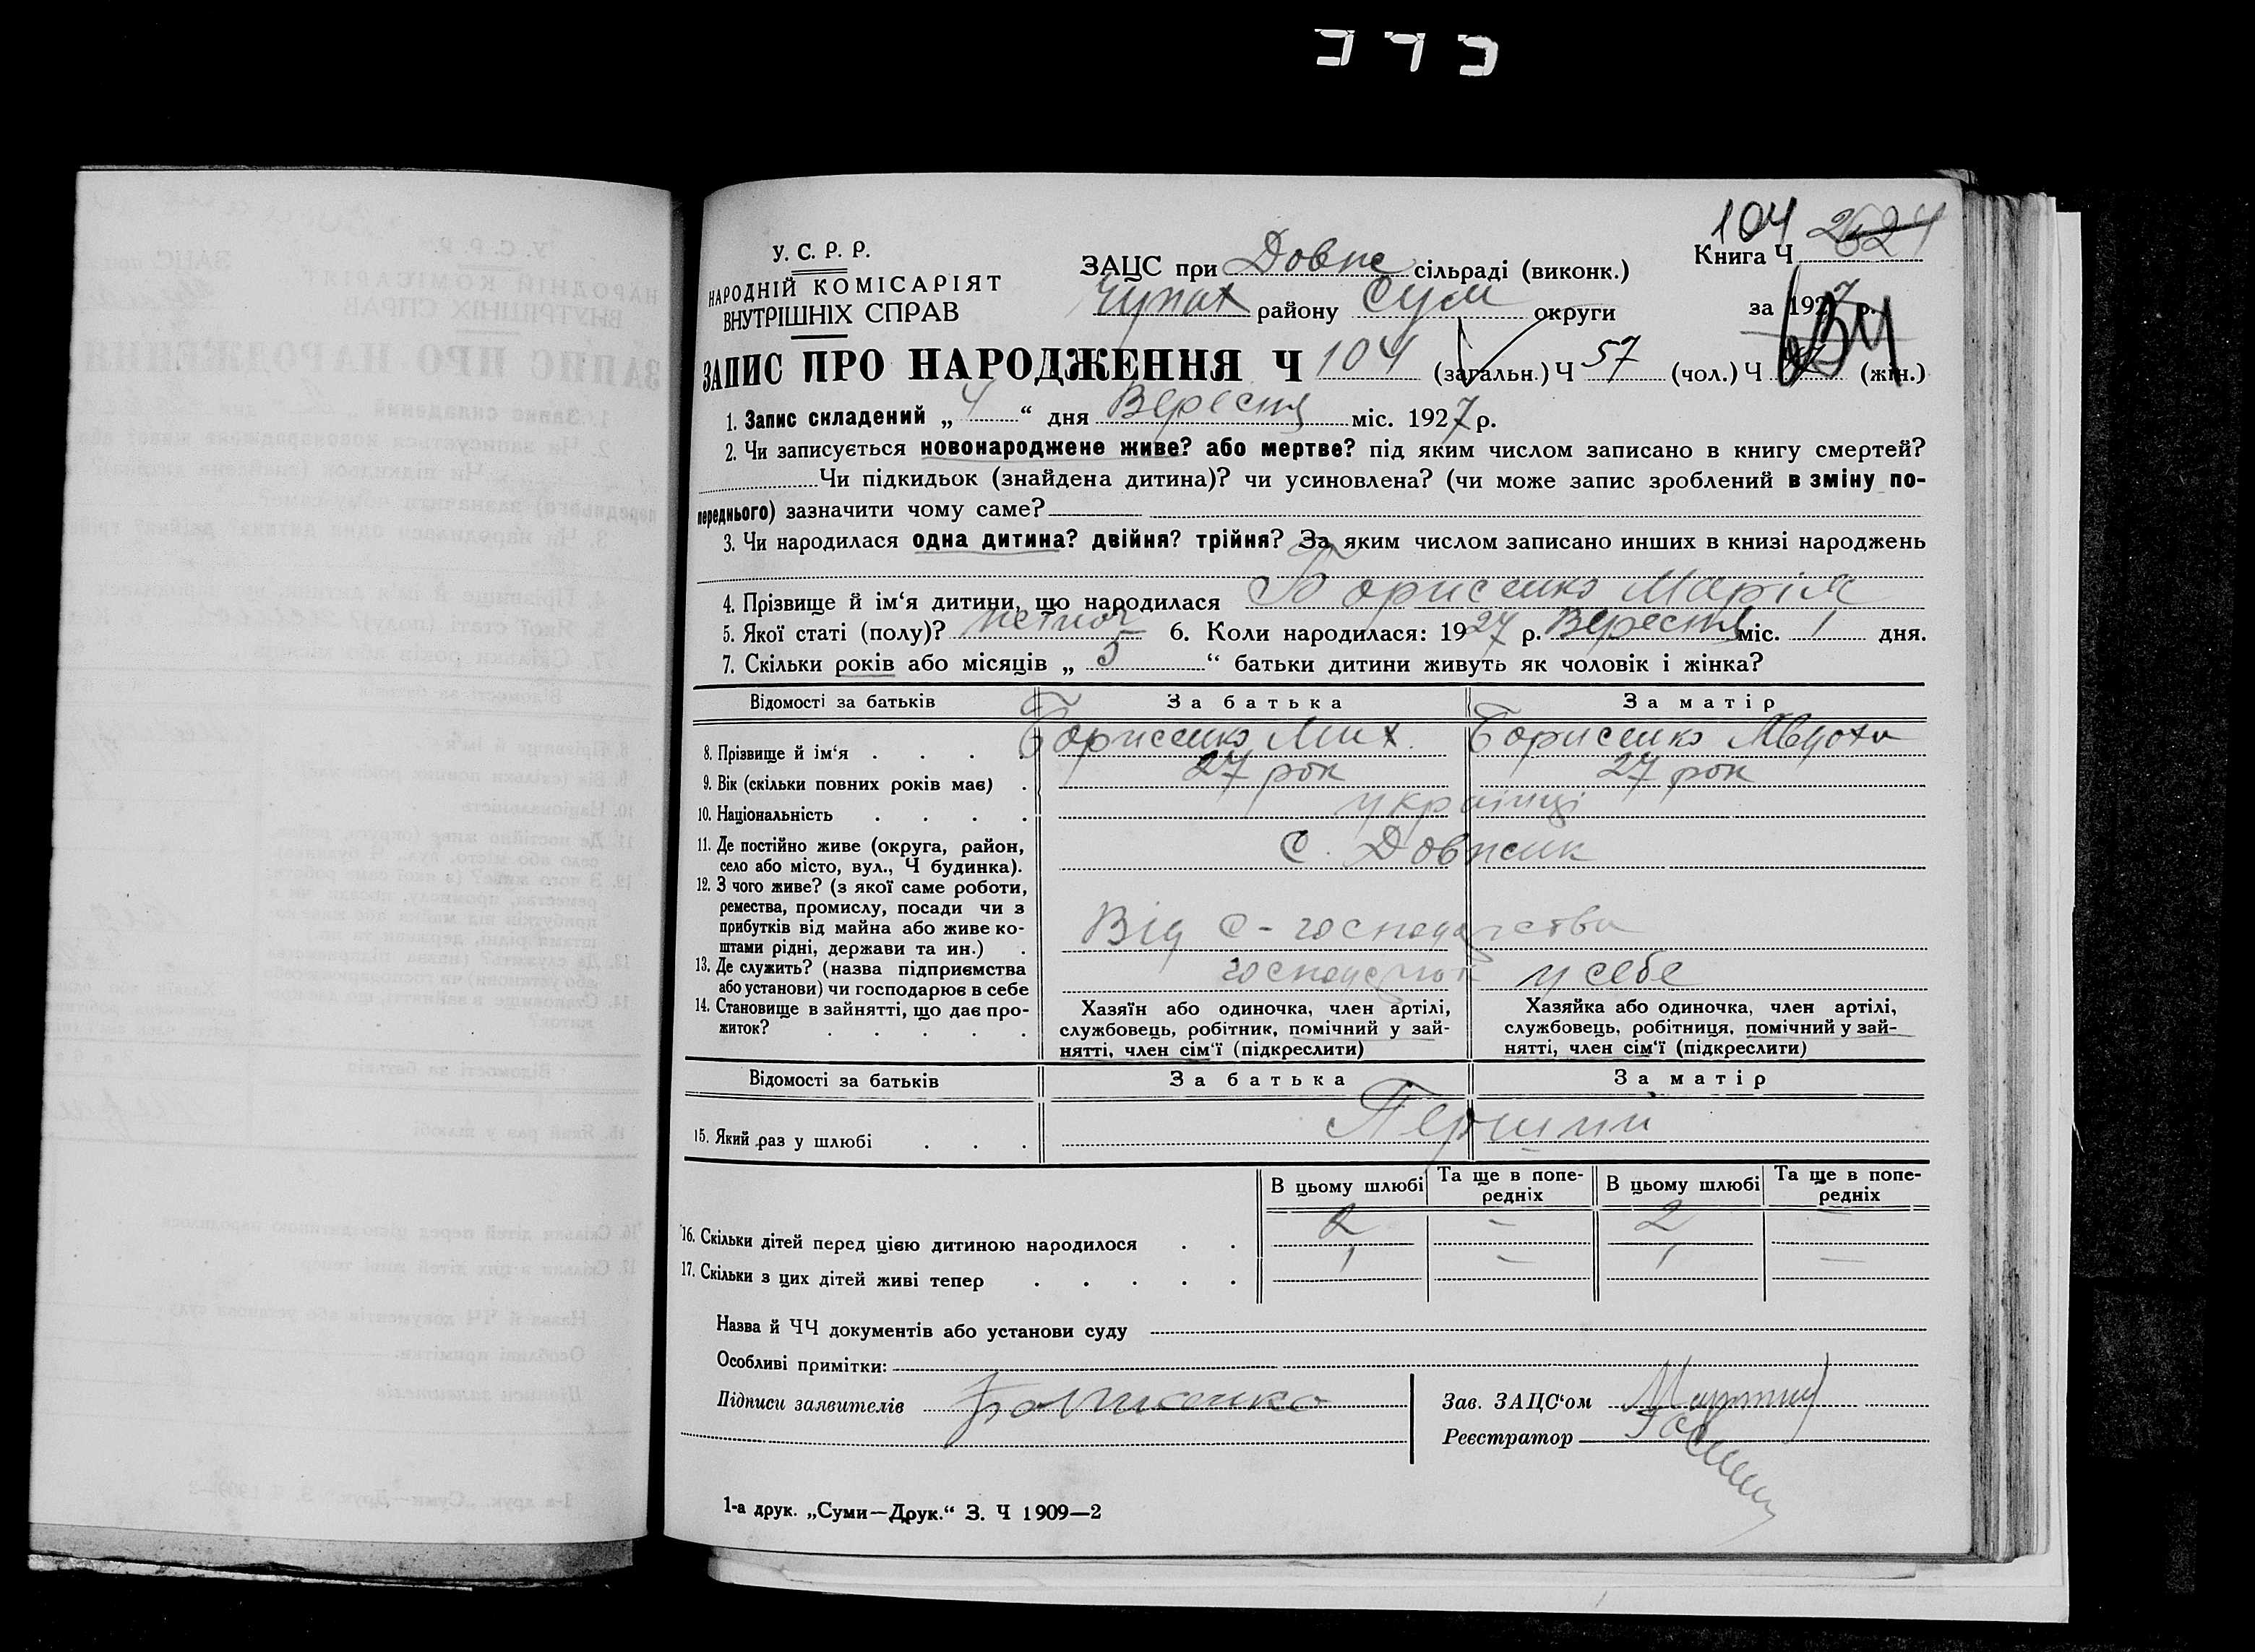 104
У. С. Р. Р.
НАРОДНІЙ КОМІСАРІЯТ
ВНУТРІШНІХ СПРАВ
ЗАЦС при Довж сільраді (виконк.)
Чупах району Сум округи
Книга Ч
за 1927 р.
134
ЗАПИС ПРО НАРОДЖЕННЯ Ч 104 (загальн.) Ч 57 (чол.) Ч (жін.)
1. Запис складений „ 4 “ дня Вересня міс. 1927 р.
2. Чи записується новонароджене живе? або мертве? під яким числом записано в книгу смертей?
Чи підкидьок (знайдена дитина)? чи усиновлена? (чи може запис зроблений в зміну по-
переднього) зазначити чому саме?
3. Чи народилася одна дитина? двійня? трійня? За яким числом записано инших в книзі народжень
4. Прізвище й ім‘я дитини, що народилася Борисенко Марія
5. Якої статі (полу)? жіноч 6. Коли народилася: 1927 р. Вересня міс. 1 дня.
7. Скільки років або місяців „ 5 “ батьки дитини живуть як чоловік і жінка?
Відомості за батьків За батька За матір
8. Прізвище й ім‘я . . . . Борисенко Мих. Борисенко Явдоха
9. Вік (скільки повних років має) . 27 рок 27 рок
10. Національність . . . . українці
11. Де постійно живе (округа, район,
село або місто, вул., Ч будинка). С. Довжик
12. З чого живе? (з якої саме роботи,
ремества, промислу, посади чи з
прибутків від майна або живе ко-
штами рідні, держави та ин.) . Від с-господарства
13. Де служить? (назва підприємства
або установи) чи господарює в себе у себе
14. Становище в зайнятті, що дає про-
житок? . . . . .
Хазяїн або одиночка, член артілі,
службовець, робітник, помічний у зай-
нятті, член сім‘ї (підкреслити)
Хазяйка або одиночка, член артілі,
службовець, робітниця, помічний у зай-
нятті, член сім‘ї (підкреслити)
Відомості за батьків За батька За матір
15. Який раз у шлюбі . . . Першими
В цьому шлюбі Та ще в попе-редніх В цьому шлюбі Та ще в попе-редніх
16. Скільки дітей перед цією дитиною народилося . . 2 – 2 –
17. Скільки з цих дітей живі тепер . . . . . 1 – 1 –
Назва й ЧЧ документів або установи суду
Особливі примітки:
Підписи заявителів Борисенко
Зав. ЗАЦС‘ом
Реєстратор
1-а друк. „Суми—Друк.“ З. Ч 1909—2